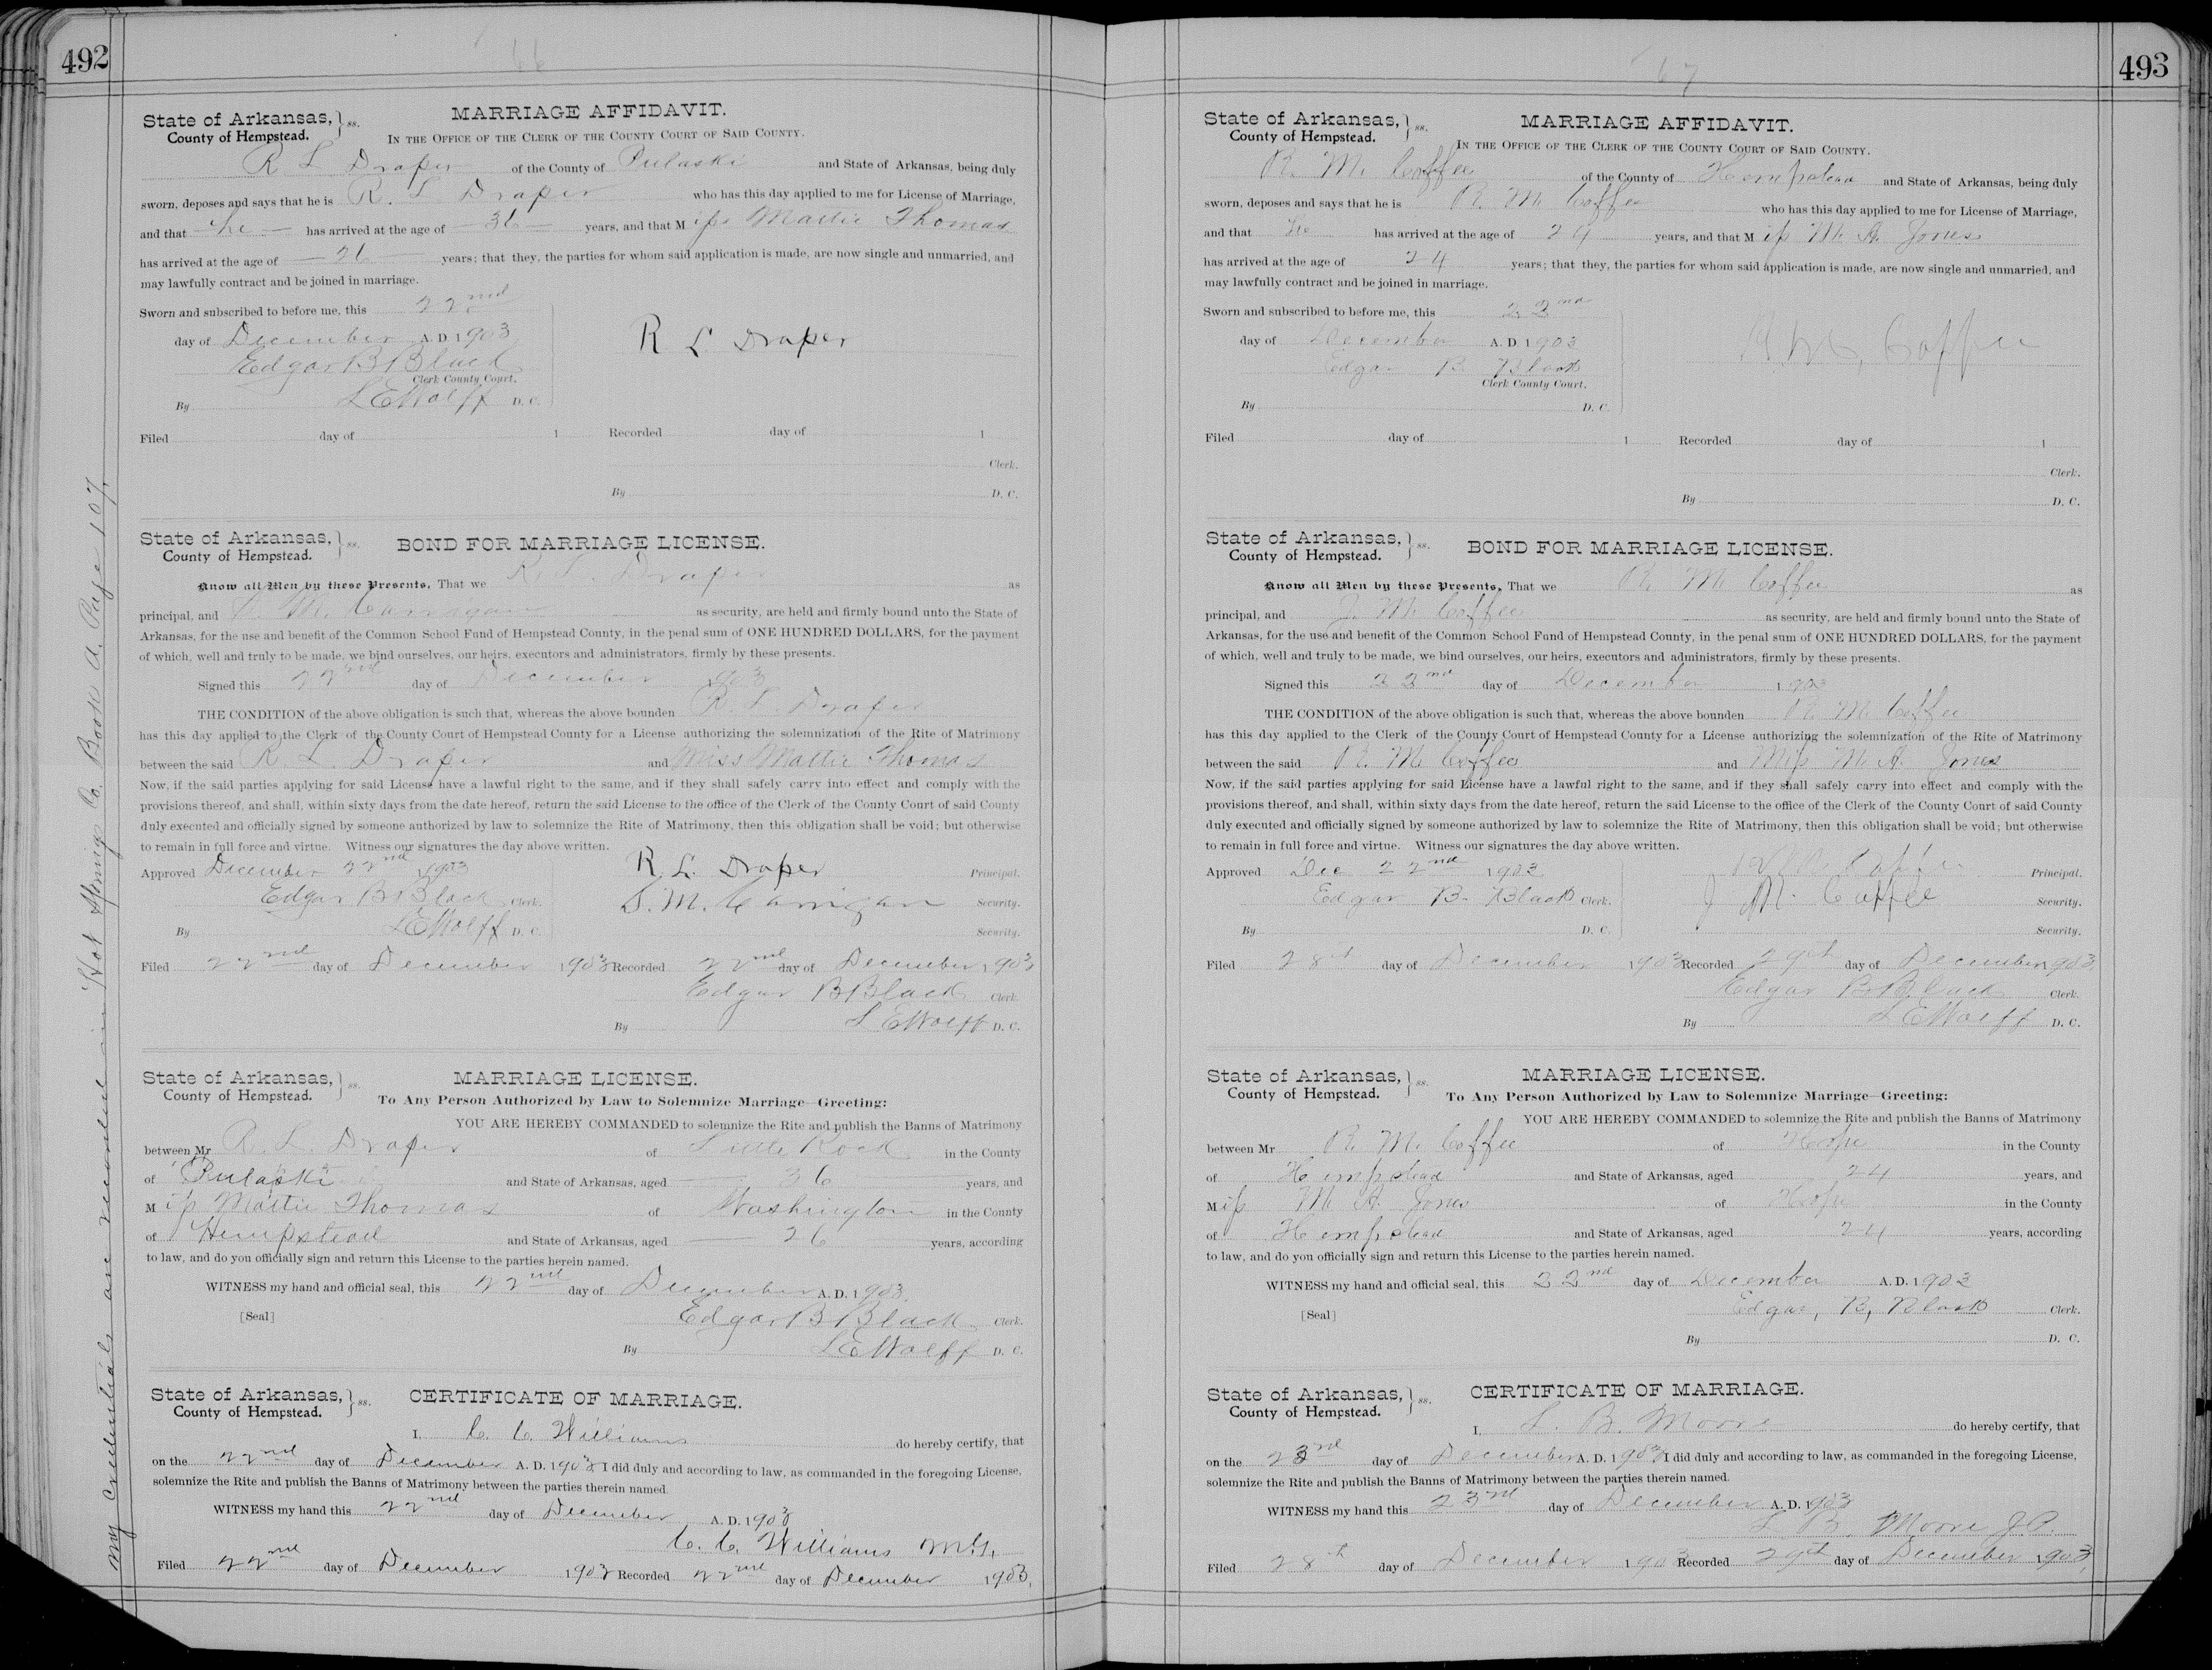 492
66
State of Arkansas, } ss.
County of Hempstead.
MARRIAGE AFFIDAVIT.
IN THE OFFICE OF THE CLERK OF THE COUNTY COURT OF SAID COUNTY.
R. L. Draper of the County of Pulaski and State of Arkansas, being duly
sworn, deposes and says that he is R. L. Draper who has this day applied to me for License of Marriage,
and that he has arrived at the age of 36 years, and that Miss Mattie Thomas
has arrived at the age of 26 years; that they, the parties for whom said application is made, are now single and unmarried, and
may lawfully contract and be joined in marriage.
Sworn and subscribed to before me, this 22nd
day of December A. D. 1903
R L Draper
Edgar B Black
Clerk County Court.
By L E Wolff D. C.
Filed day of 1 Recorded day of 1
Clerk.
By D. C.
State of Arkansas, } ss.
County of Hempstead.
BOND FOR MARRIAGE LICENSE.
Know all Men by these Presents, That we R. L. Draper as
principal, and S. M. Carrigan as security, are held and firmly bound unto the State of
Arkansas, for the use and benefit of the Common School Fund of Hempstead County, in the penal sum of ONE HUNDRED DOLLARS, for the payment
of which, well and truly to be made, we bind ourselves, our heirs, executors and administrators, firmly by these presents.
Signed this 22nd day of December 1903
THE CONDITION of the above obligation is such that, whereas the above bounden R. L. Draper
has this day applied to the Clerk of the County Court of Hempstead County for a License authorizing the solemnization of the Rite of Matrimony
between the said R. L. Draper and Miss Mattie Thomas
Now, if the said parties applying for said License have a lawful right to the same, and if they shall safely carry into effect and comply with the
provisions thereof, and shall, within sixty days from the date hereof, return the said License to the office of the Clerk of the County Court of said County
duly executed and officially signed by someone authorized by law to solemnize the Rite of Matrimony, then this obligation shall be void; but otherwise
to remain in full force and virtue. Witness our signatures the day above written.
Approved December 22nd 1903 R. L. Draper Principal.
Edgar B Black Clerk. S. M. Carrigan Security.
By L E Wolff D. C. Security.
Filed 22nd day of December 1903 Recorded 22nd day of December 1903
Edgar B Black Clerk.
By L E Wolff D. C.
State of Arkansas, } ss.
County of Hempstead.
MARRIAGE LICENSE.
To Any Person Authorized by Law to Solemnize Marriage—Greeting:
YOU ARE HEREBY COMMANDED to solemnize the Rite and publish the Banns of Matrimony
between Mr R. L. Draper of Little Rock in the County
of Pulaski and State of Arkansas, aged 36 years, and
Miss Mattie Thomas of Washington in the County
of Hempstead and State of Arkansas, aged 26 years, according
to law, and do you officially sign and return this License to the parties herein named.
WITNESS my hand and official seal, this 22nd day of December A. D. 1903.
[Seal] Edgar B Black Clerk.
By L E Wolff D. C.
State of Arkansas, } ss.
County of Hempstead.
CERTIFICATE OF MARRIAGE.
I, C. C. Williams do hereby certify, that
on the 22nd day of December A. D. 1903 I did duly and according to law, as commanded in the foregoing License,
solemnize the Rite and publish the Banns of Matrimony between the parties therein named.
WITNESS my hand this 22nd day of December A. D. 1903
C. C. Williams M.G.
Filed 22nd day of December 1903 Recorded 22nd day of December 1903.
My Credentials are recorded in Hot Springs Co. Book A. Page 107.
493
67
State of Arkansas, } ss.
County of Hempstead.
MARRIAGE AFFIDAVIT.
IN THE OFFICE OF THE CLERK OF THE COUNTY COURT OF SAID COUNTY.
R. M. Coffee of the County of Hempstead and State of Arkansas, being duly
sworn, deposes and says that he is R. M. Coffee who has this day applied to me for License of Marriage,
and that He has arrived at the age of 24 years, and that Miss M. A. Jones
has arrived at the age of 24 years; that they, the parties for whom said application is made, are now single and unmarried, and
may lawfully contract and be joined in marriage.
Sworn and subscribed to before me, this 22nd
day of December A. D. 1903
R M Coffee
Edgar B. Black
Clerk County Court.
By D. C.
Filed day of 1 Recorded day of 1
Clerk.
By D. C.
State of Arkansas, } ss.
County of Hempstead.
BOND FOR MARRIAGE LICENSE.
Know all Men by these Presents, That we R. M. Coffee as
principal, and J. M. Coffee as security, are held and firmly bound unto the State of
Arkansas, for the use and benefit of the Common School Fund of Hempstead County, in the penal sum of ONE HUNDRED DOLLARS, for the payment
of which, well and truly to be made, we bind ourselves, our heirs, executors and administrators, firmly by these presents.
Signed this 22nd day of December 1903
THE CONDITION of the above obligation is such that, whereas the above bounden R. M. Coffee
has this day applied to the Clerk of the County Court of Hempstead County for a License authorizing the solemnization of the Rite of Matrimony
between the said R. M. Coffee and Miss M. A. Jones
Now, if the said parties applying for said License have a lawful right to the same, and if they shall safely carry into effect and comply with the
provisions thereof, and shall, within sixty days from the date hereof, return the said License to the office of the Clerk of the County Court of said County
duly executed and officially signed by someone authorized by law to solemnize the Rite of Matrimony, then this obligation shall be void; but otherwise
to remain in full force and virtue. Witness our signatures the day above written.
Approved Dec 22nd 1903 R M Coffee Principal.
Edgar B. Black Clerk. J M. Coffee Security.
By D. C. Security.
Filed 28th day of December 1903 Recorded 29th day of December 1903.
Edgar B Black Clerk.
By L E Wolff D. C.
State of Arkansas, } ss.
County of Hempstead.
MARRIAGE LICENSE.
To Any Person Authorized by Law to Solemnize Marriage—Greeting:
YOU ARE HEREBY COMMANDED to solemnize the Rite and publish the Banns of Matrimony
between Mr R. M. Coffee of Hope in the County
of Hempstead and State of Arkansas, aged 24 years, and
Miss M. A. Jones of Hope in the County
of Hempstead and State of Arkansas, aged 24 years, according
to law, and do you officially sign and return this License to the parties herein named.
WITNESS my hand and official seal, this 22nd day of December A. D. 1903
[Seal] Edgar, B, Black Clerk.
By D. C.
State of Arkansas, } ss.
County of Hempstead.
CERTIFICATE OF MARRIAGE.
I, L. B. Moore do hereby certify, that
on the 23rd day of December A. D. 1903 I did duly and according to law, as commanded in the foregoing License,
solemnize the Rite and publish the Banns of Matrimony between the parties therein named.
WITNESS my hand this 23rd day of December A. D. 1903
L. B. Moore J.P.
Filed 28th day of December 1903 Recorded 29th day of December 1903,